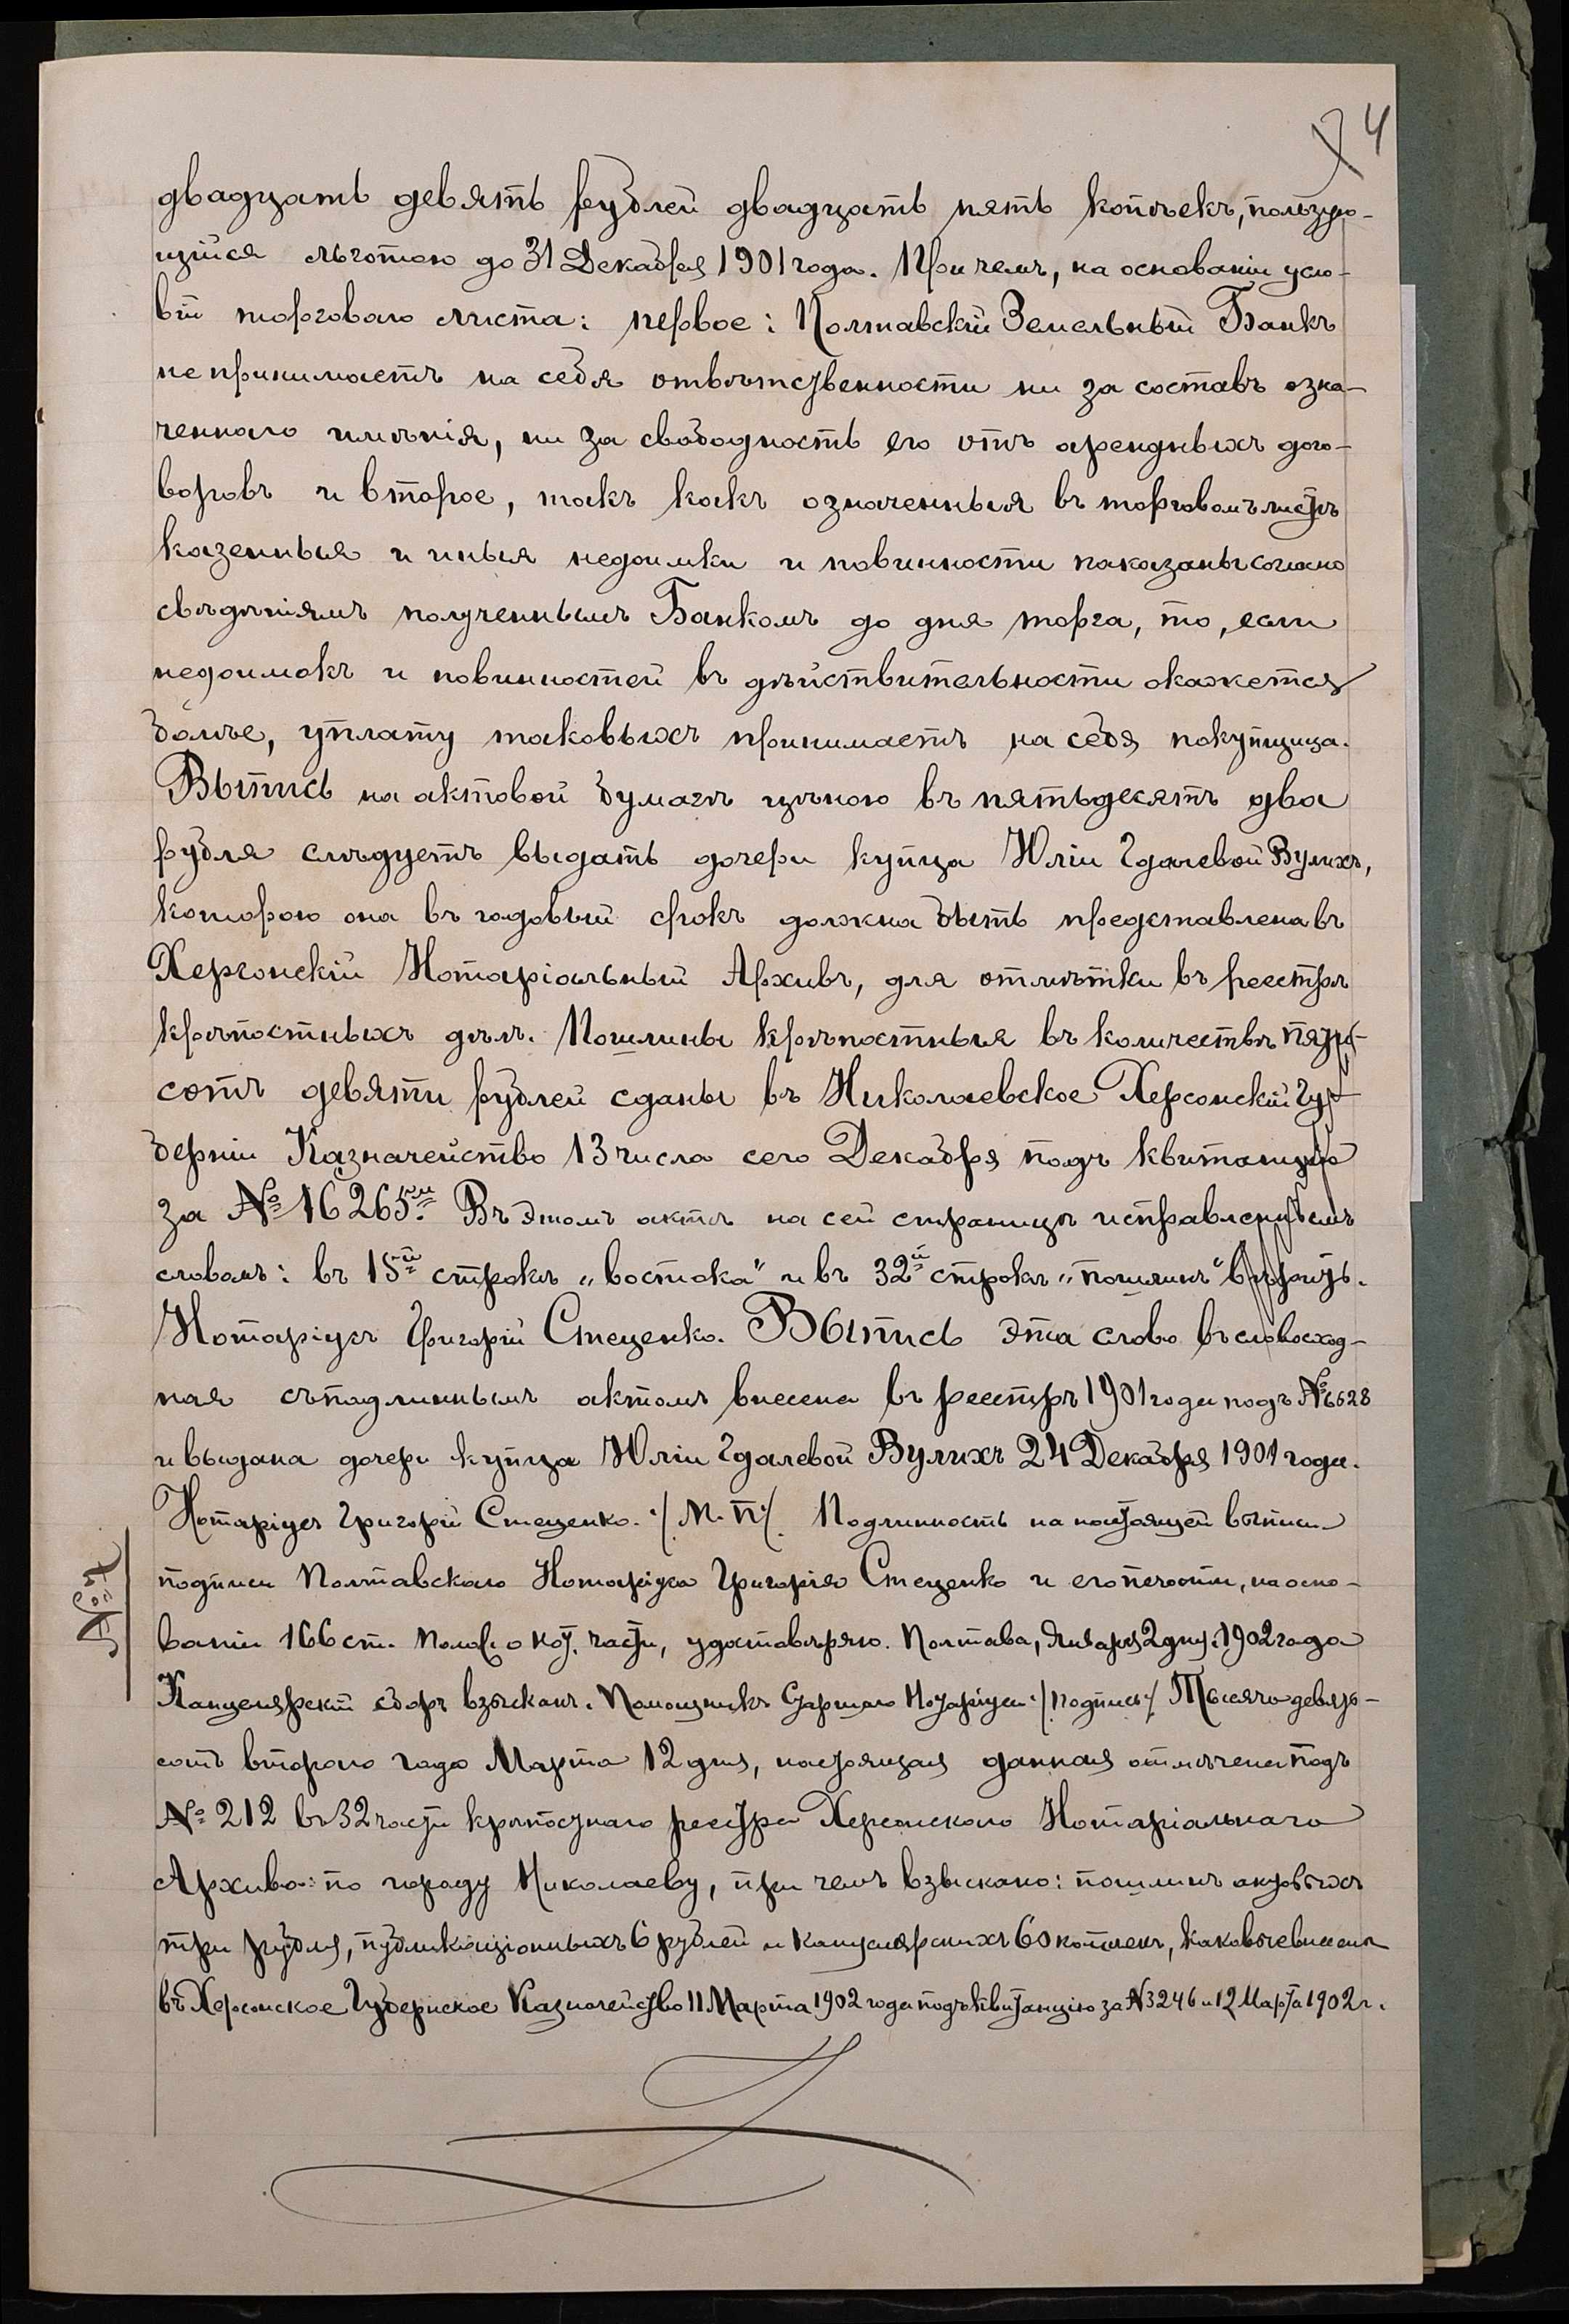 4
двадцать девять рублей двадцать пять копѣекъ, пользую-
щійся льготою до 31 Декабря 1901 года. При чемъ, на основаніи усло-
вій торговаго листа: первое: Полтавскій Земельный Банкъ
не принимаетъ на себя отвѣтственности ни за составъ озна-
ченнаго имѣнія, ни за свободность его отъ арендныхъ дого-
воровъ и второе, такъ какъ означенныя въ торговомъ листѣ
казенныя и иныя недоимки и повинности показаны согласно
свѣдѣніямъ полученнымъ Банкомъ до дня торга, то, если
недоимокъ и повинностей въ дѣйствительности окажется
болѣе, уплату таковыхъ принимаетъ на себя покупщица.
Выпись на актовой бумагѣ цѣною въ пятьдесятъ два
рубля слѣдуетъ выдать дочери купца Юліи Гдалевой Вулихъ,
которою она въ годовый срокъ должна быть представлена въ
Херсонскій Нотаріальный Архивъ, для отмѣтки въ реестрѣ
крѣпостныхъ дѣлъ. Пошлины крѣпостныя въ количествѣ пяти-
сотъ девяти рублей сданы въ Николаевское Херсонской Гу-
берніи Казначейство 13 числа сего Декабря подъ квитанцію
за № 16265мъ. Въ этомъ актѣ на сей страницѣ исправленнымъ
словамъ: въ 15й строкѣ „востока" и въ 32й строкѣ „пошлинъ" вѣрить.
Нотаріусъ Григорій Стеценко. Выпись эта слово въ слово сход-
ная съ подлиннымъ актомъ внесена въ реестръ 1901 года подъ № 6628
и выдана дочери купца Юліи Гдалевой Вулихъ 24 Декабря 1901 года.
Нотаріусъ Григорій Стеценко. /М. П./. Подлинность на настоящей выписи
подписи Полтавскаго Нотаріуса Григорія Стеценко и его печати, на осно-
ваніи 166 ст. Полож. о нот. части, удостовѣряю. Полтава, Января 2 дня 1902 года
Канцелярскій сборъ взысканъ. Помощникъ Старшаго Нотаріуса /подпись/. Тысяча девять-
сотъ второго года Марта 12 дня, настоящая данная отмѣчена подъ
№ 212 въ 32 части крѣпостнаго реестра Херсонскаго Нотаріальнаго
Архива: по городу Николаеву, при чемъ взыскано: пошлинъ актовыхъ
три рубля, публикаціонныхъ 6 рублей и канцелярскихъ 60 копѣекъ, каковые внесены
въ Херсонское Губернское Казначейство 11 Марта 1902 года подъ квитанцію за № 3246 и 12 Марта 1902 г.